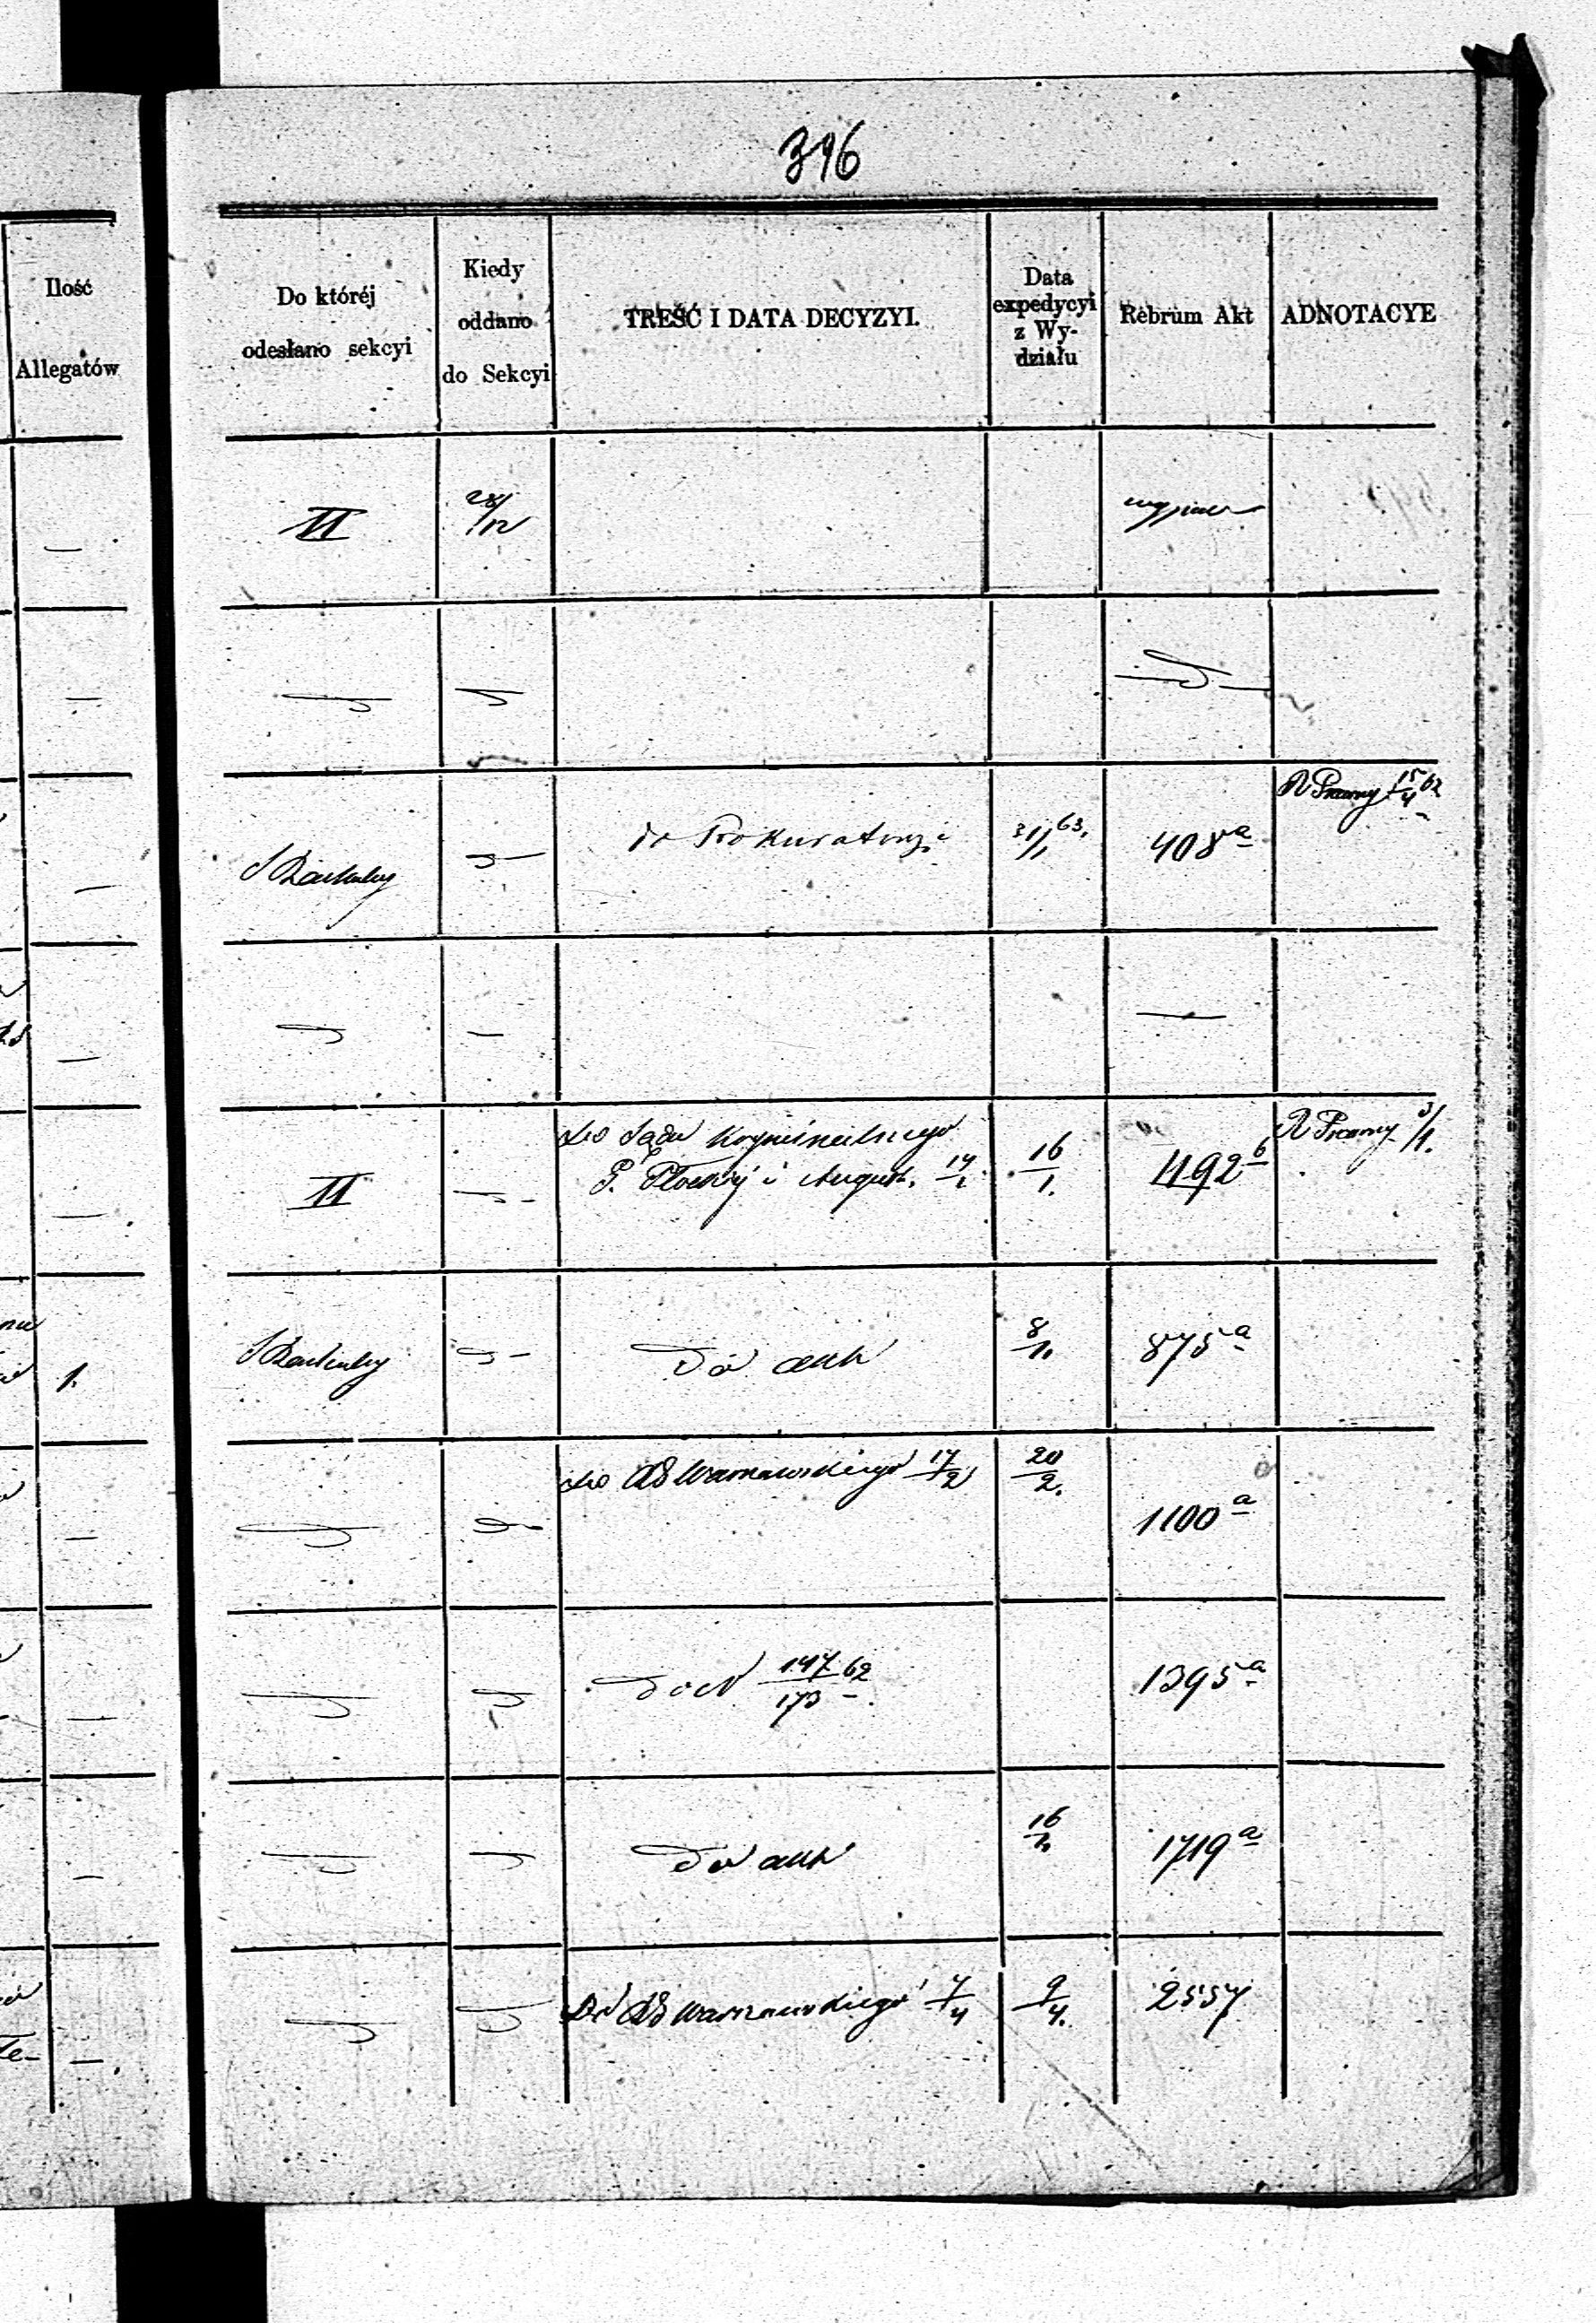 396
Ilość
Allegatów
Do któréj
odesłano sekcyi
Kiedy
oddano
do Sekcyi
TREŚĆ I DATA DECYZYI.
Data
expedycyi
z Wy-
działu
Rebrum Akt
ADNOTACYE
II 28/12
do Prokuratoryi 31/1 63. 408 a
15/4 62
do Sądu Kryminalnego
P. Płockiej i August. 14/1 16/1. 492 b
3/1.
II
1.
Do akt 8/1. 875 a
do RS Warszawskiego 17/2 20/2.
1100 a
Do N 147/173 62 1395 a
Do akt 16/1. 1719 a
Do RS Warszawskiego 7/4 9/4. 2557